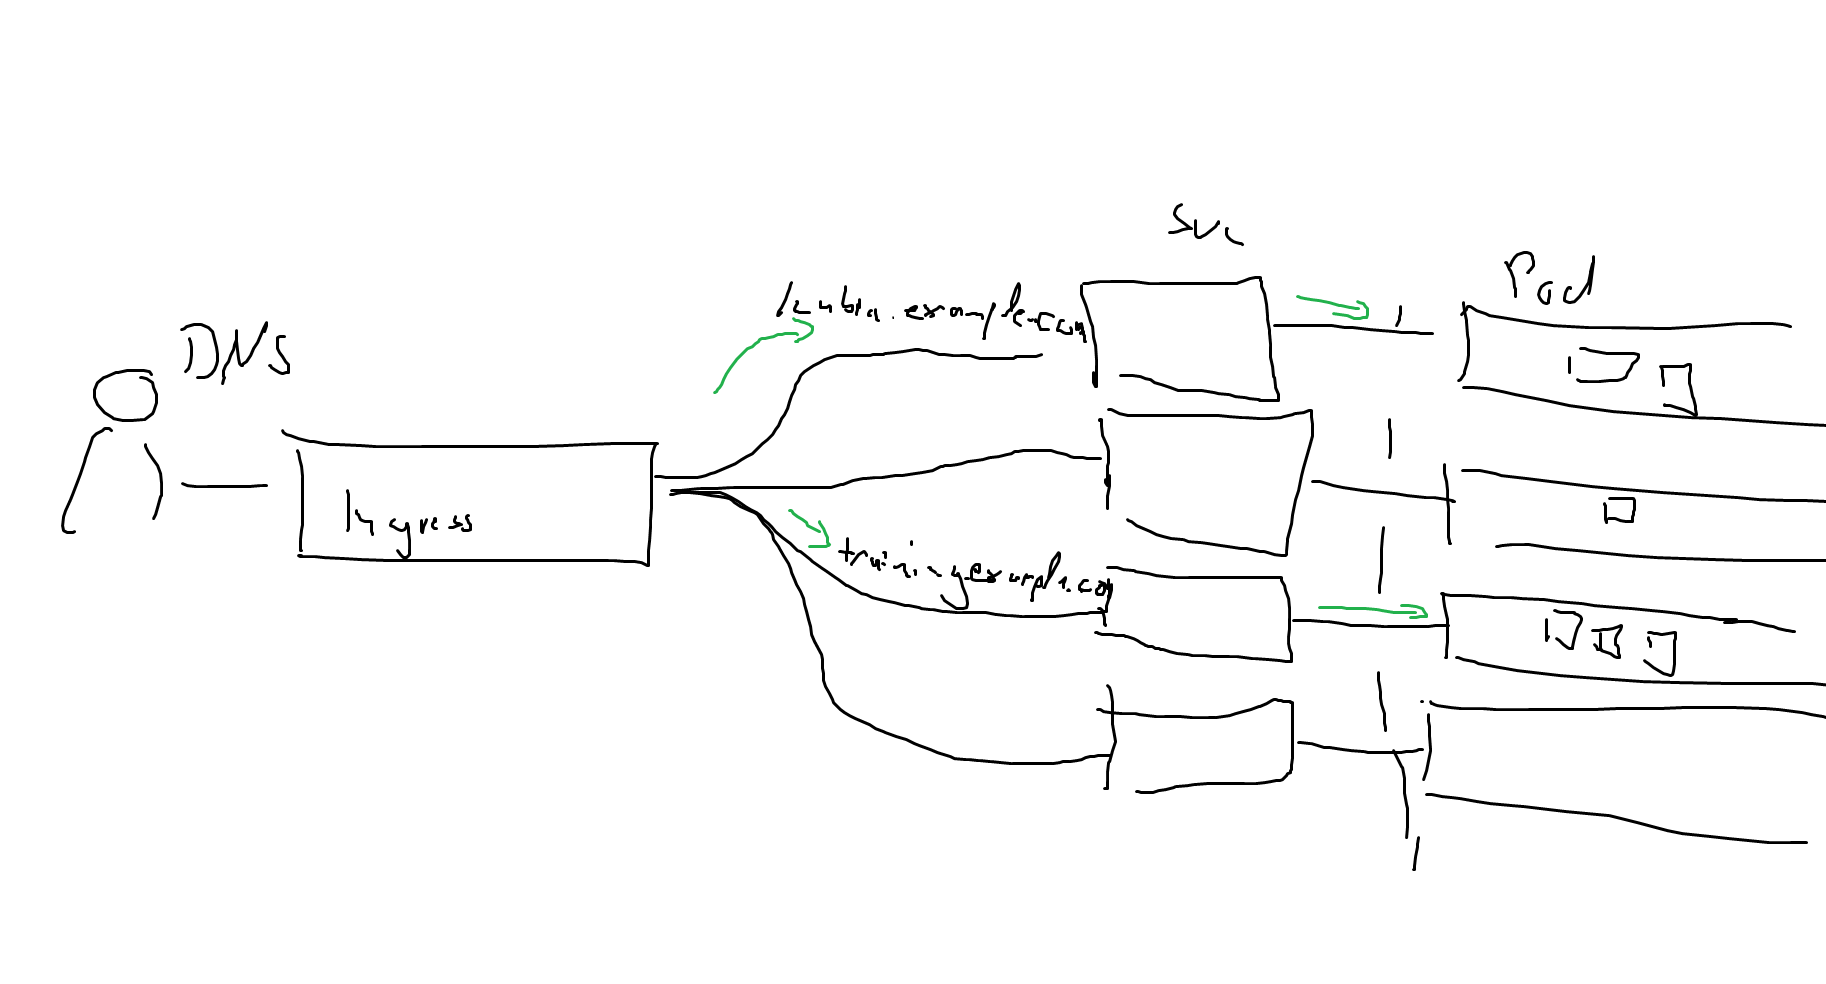 DNS
Ingress
kubia.example.com
training.example.com
svc
Pod